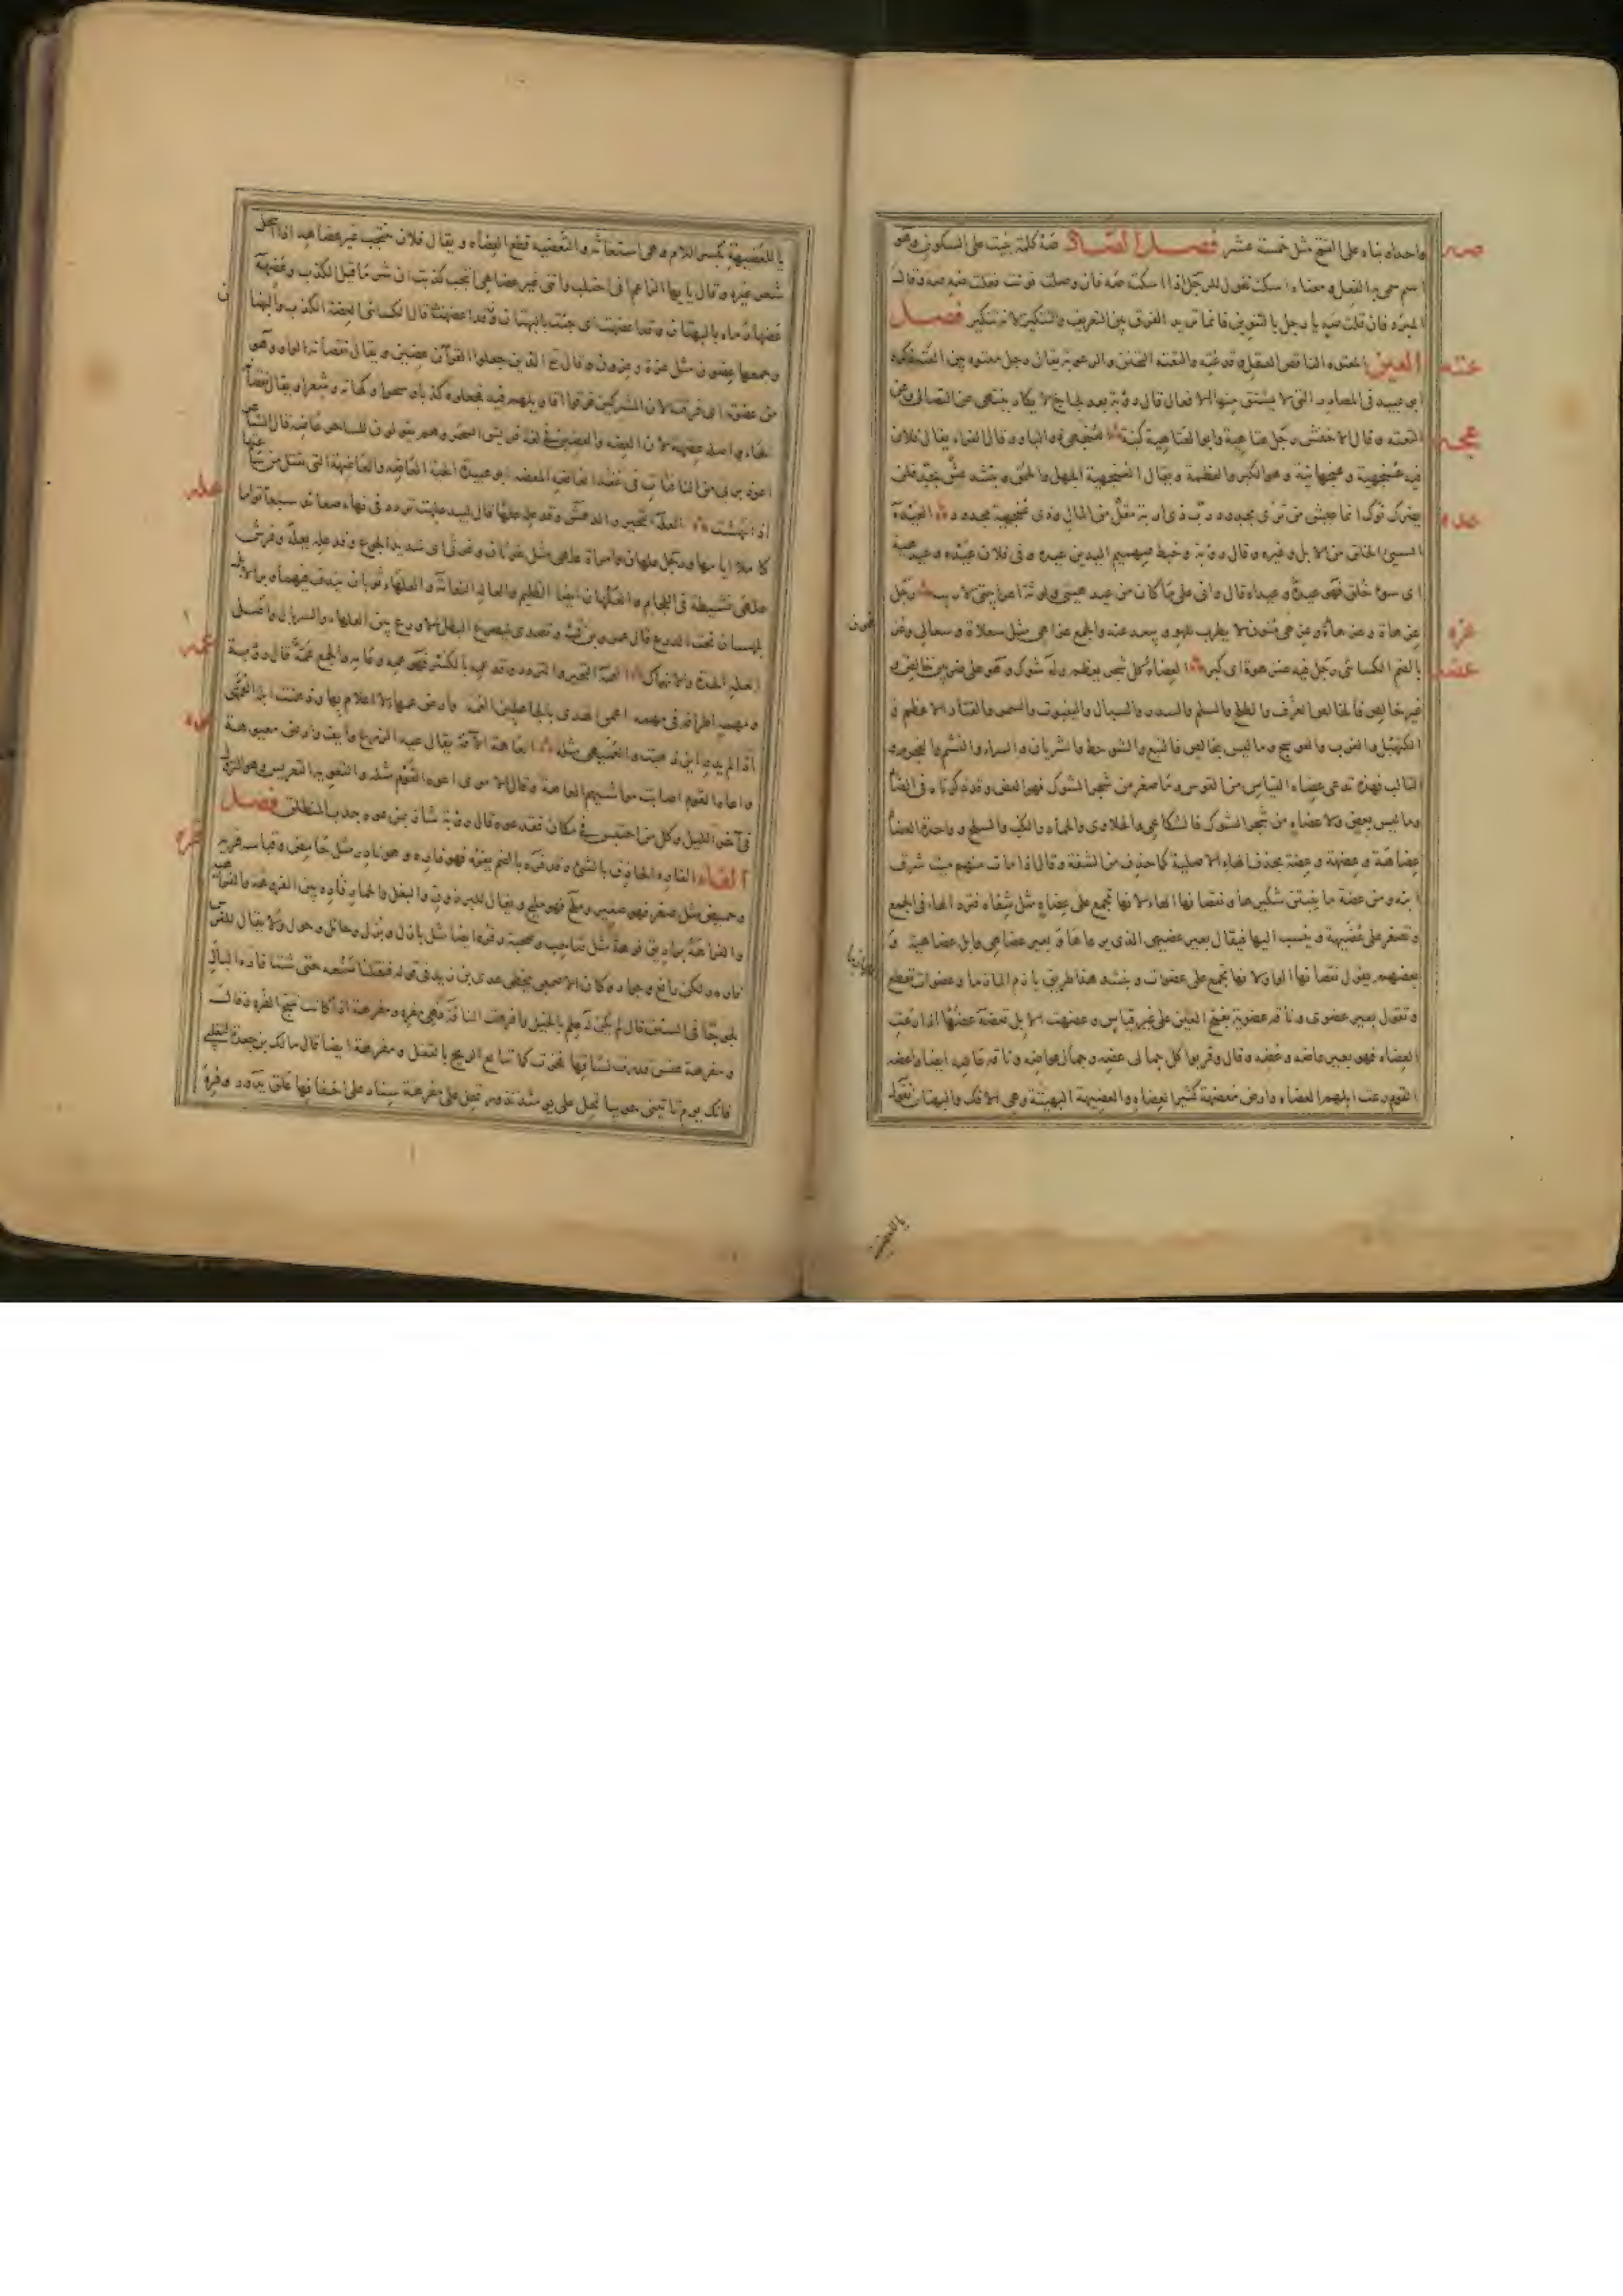 واحدا وبناه على الفتح مثل خمسة عشر فصل الصاد صه كلمة بنيت على السكون وهو
صه
اسم سمي به الفعل ومعناه اسكت تقول للرجل اذا اسكته صه فان وصلت نونت فقلت صه صه وقال
المبرد فان قلت صه يا رجل بالتنوين فانما تريد الفرق بين التعريف والتنكير لان التنكير فصل
العين المعتوه الناقص العقل وقد عته والتعته التجنن والرعونة يقال رجل معتوه بين العته ذكره
عته
ابو عبيد في المصادر التي لا يشتق منها الافعال قال رؤبة بعد لجاج لا يكاد ينتهي عن التصابي وعن
التعته وقال الاخفش رجل عتاهية وابو العتاهية كنية العنجهي ذو البأو وقال الفراء يقال فلان
عجه
فيه عنجهية وعنجهانية وهو الكبر والعظمة ويقال العنجهية الجهل والحمق وينشد عش بجد فلن
يضرك نوك انما عيش من ترى بجدود رب ذي اربة مقل من المال وذي عنجهية مجدود العيده
عده
السيئ الخلق من الابل وغيره وقال رؤبة وخبط صهميم اليدين عيده وفي فلان عيدهة وعيدهية
اي سوء خلق فهو عيده وعيداه قال واني على ما كان من عيدهيتي ولوثة اعرابيتي لاريب رجل
عزهاة وعزهاءة وعزهى منون لا يطرب للهو ويبعد عنه والجمع عزاهي مثل سعلاة وسعالي وعزهون
عزه
بالضم الكسائي رجل فيه عنزهوة اي كبر العضاه كل شجر يعظم وله شوك وهو على ضربين خالص و
عضه
غير خالص فالخالص الغرف والطلح والسلم والسدر والسيال والينبوت والسمر والقتاد الاعظم و
الكنهبل والغرب والعوسج وما ليس بخالص فالنبع والشوحط والشريان والسراء والنشم والعجرم و
التألب فهذه تدعى عضاه القياس من القوس وما صغر من شجر الشوك فهو العض وقد ذكرناه في الضاد
وما ليس بعض ولا عضاه من شجر الشوك فالشكاعى والحلاوى والحاذ والكب والسلج وواحدة العضاه
عضاهة وعضهة وعضة بحذف الهاء الاصلية كما حذف من الشفة وقال اذا مات منهم ميت سرق
ابنه ومن عضة ما ينبتن شكيرها ونقصانها الهاء لانها تجمع على عضاه مثل شفاه فترد الهاء في الجمع
وتصغر على عضيهة وينسب اليها فيقال بعير عضهي الذي يرعاها وبعير عضاهي وابل عضاهية و
بعضهم يقول نقصانها الواو لانها تجمع على عضوات وينشد هذا طريق يازم المآزما وعضوات تقطع
وتقول بعير عضوي وناقة عضوية بفتح العين على غير قياس وعضهت الابل تعضه عضها اذا رعت
العضاه فهو بعير عاضه وعضه وقال وقربوا كل جمالي عضه وجمال عواضه وناقة عاضه ايضا واعضه
القوم رعت ابلهم العضاه وارض معضهة كثيرة العضاه والعضيهة البهيتة وهي الافك والبهتان تقول
يا للعضيهة
يا للعضيهة بكسر اللام وهي استغاثة والتعضيه قطع العضاه ويقال فلان ينتجب غير عضاهه اذا انتحل
شعر غيره وقال يا ايها الزاعم اني اجتلب وانني غير عضاهي انتجب كذبت ان شر ما قيل الكذب وعضهه
عضها رماه بالبهتان وقد اعضهت اي جئت بالبهتان قال الكسائي العضة الكذب والبهتان
وجمعها عضون مثل عزة وعزون وقال تع الذين جعلوا القرآن عضين ويقال نقصانه الواو وهو
من عضوته اي فرقته لان المشركين فرقوا اقاويلهم فيه فجعلوه كذبا وسحرا وكهانة وشعرا ويقال نقصانه
الهاء واصله عضهة لان العضه والعضين في لغة قريش السحر وهم يقولون للساحر عاضه قال الشاعر
اعوذ بربي من النافثات في عقد العاضه المعضه ابو عبيدة الحية العاضه والعاضهة التي تقتل من ساعتها
اذا نهشت العله التحير والدهش وقد عله علها قال لبيد علهت تردد في نهاء صعائد سبعا تؤاما
عله
كاملا ايامها ورجل علهان وامرأة علهى مثل غرثان وغرثى اي شديد الجوع وقد عله يعله وفرس
علهى نشيطة في اللجام والعلهان ايضا الظليم والعاله النعامة والعلهاء ثوبان يندف فيهما وبر الابل
يلبسان تحت الدرع قال عمرو بن قمئة وتصدى لتصرع البطل الاروع بين العلهاء والسربال واصل
العله الحدة والانهماك العمه التحير والتردد وقد عمه بالكسر فهو عمه وعامه والجمع عمه قال رؤبة
عمه
ومهمه اطرافه في مهمه اعمى الهدى بالجاهلين العمه وارض عمهاء لا اعلام بها وذهبت ابله العمهى
اذا لم يدر اين ذهبت والعميهى مثله العاهة الآفة يقال عيه الزرع وايف وارض معيوهة
عوه
واعاه القوم اصابت ماشيتهم العاهة وقال الاموي اعوه القوم مثله والتعويه التعريس وهو النزول
في آخر الليل وكل من احتبس في مكان فقد عوه قال رؤبة شأز بمن عوه جدب المنطلق فصل
الفاء الفاره الحاذق بالشيء وقد فره بالضم يفره فهو فاره وهو نادر مثل حامض وقياسه فريه
فره
وحميض مثل صغر فهو صغير وملح فهو مليح ويقال للبرذون والبغل والحمار فاره بين الفروهة والفراهية
والفراهة براذين فرهة مثل صاحب وصحبة وفره ايضا مثل بازل وبزل وحائل وحول ولا يقال للفرس
فاره ولكن رائع وجواد وكان الاصمعي يخطئ عدي بن زيد في قوله فنقلنا صنعه حتى شتا فاره البال
لجوجا في السنن قال لم يكن له علم بالخيل وافرهت الناقة فهي مفره ومفرهة اذا كانت تنتج الفره وقال
ومفرهة عنس قدرت لساقها فخرت كما تتابع الريح بالقفل ومفرهة ايضا قال مالك بن جعدة التغلبي
فانك يوم تأتيني حريبا تحل علي يومئذ نذور تحل على مفرهة سناد على اخفافها علق يمور وفره